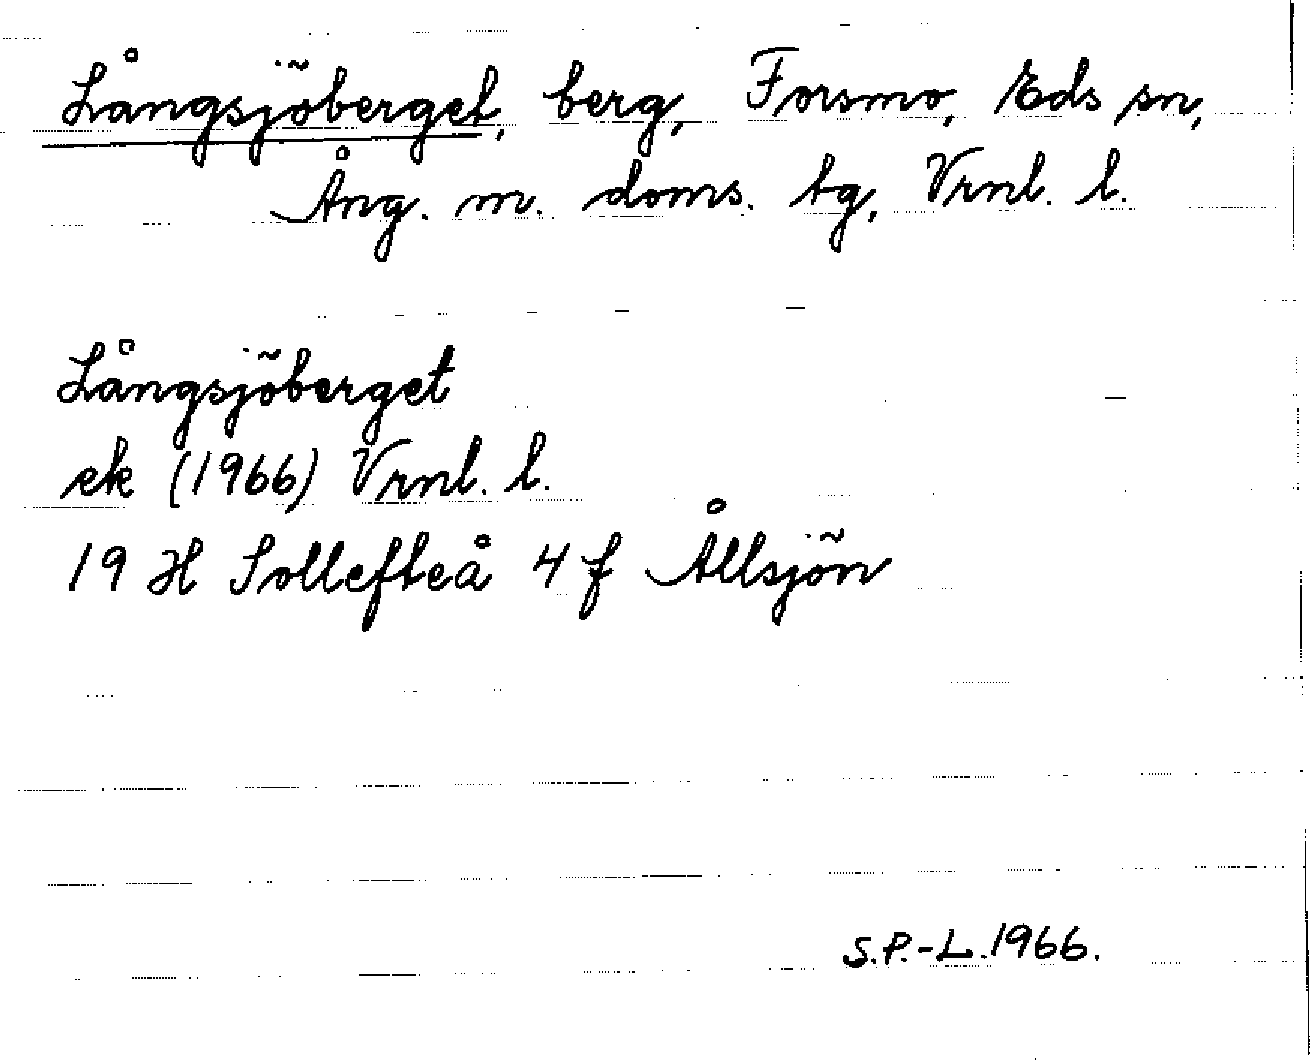 Långsjöberget, berg, Forsmo, Eds sn,
Ång. m. doms. tg, Vrnl. l.
Långsjöberget
ek (1966) Vrnl. l.
19 H Sollefteå 4 f Ållsjön
S.P.-L. 1966.